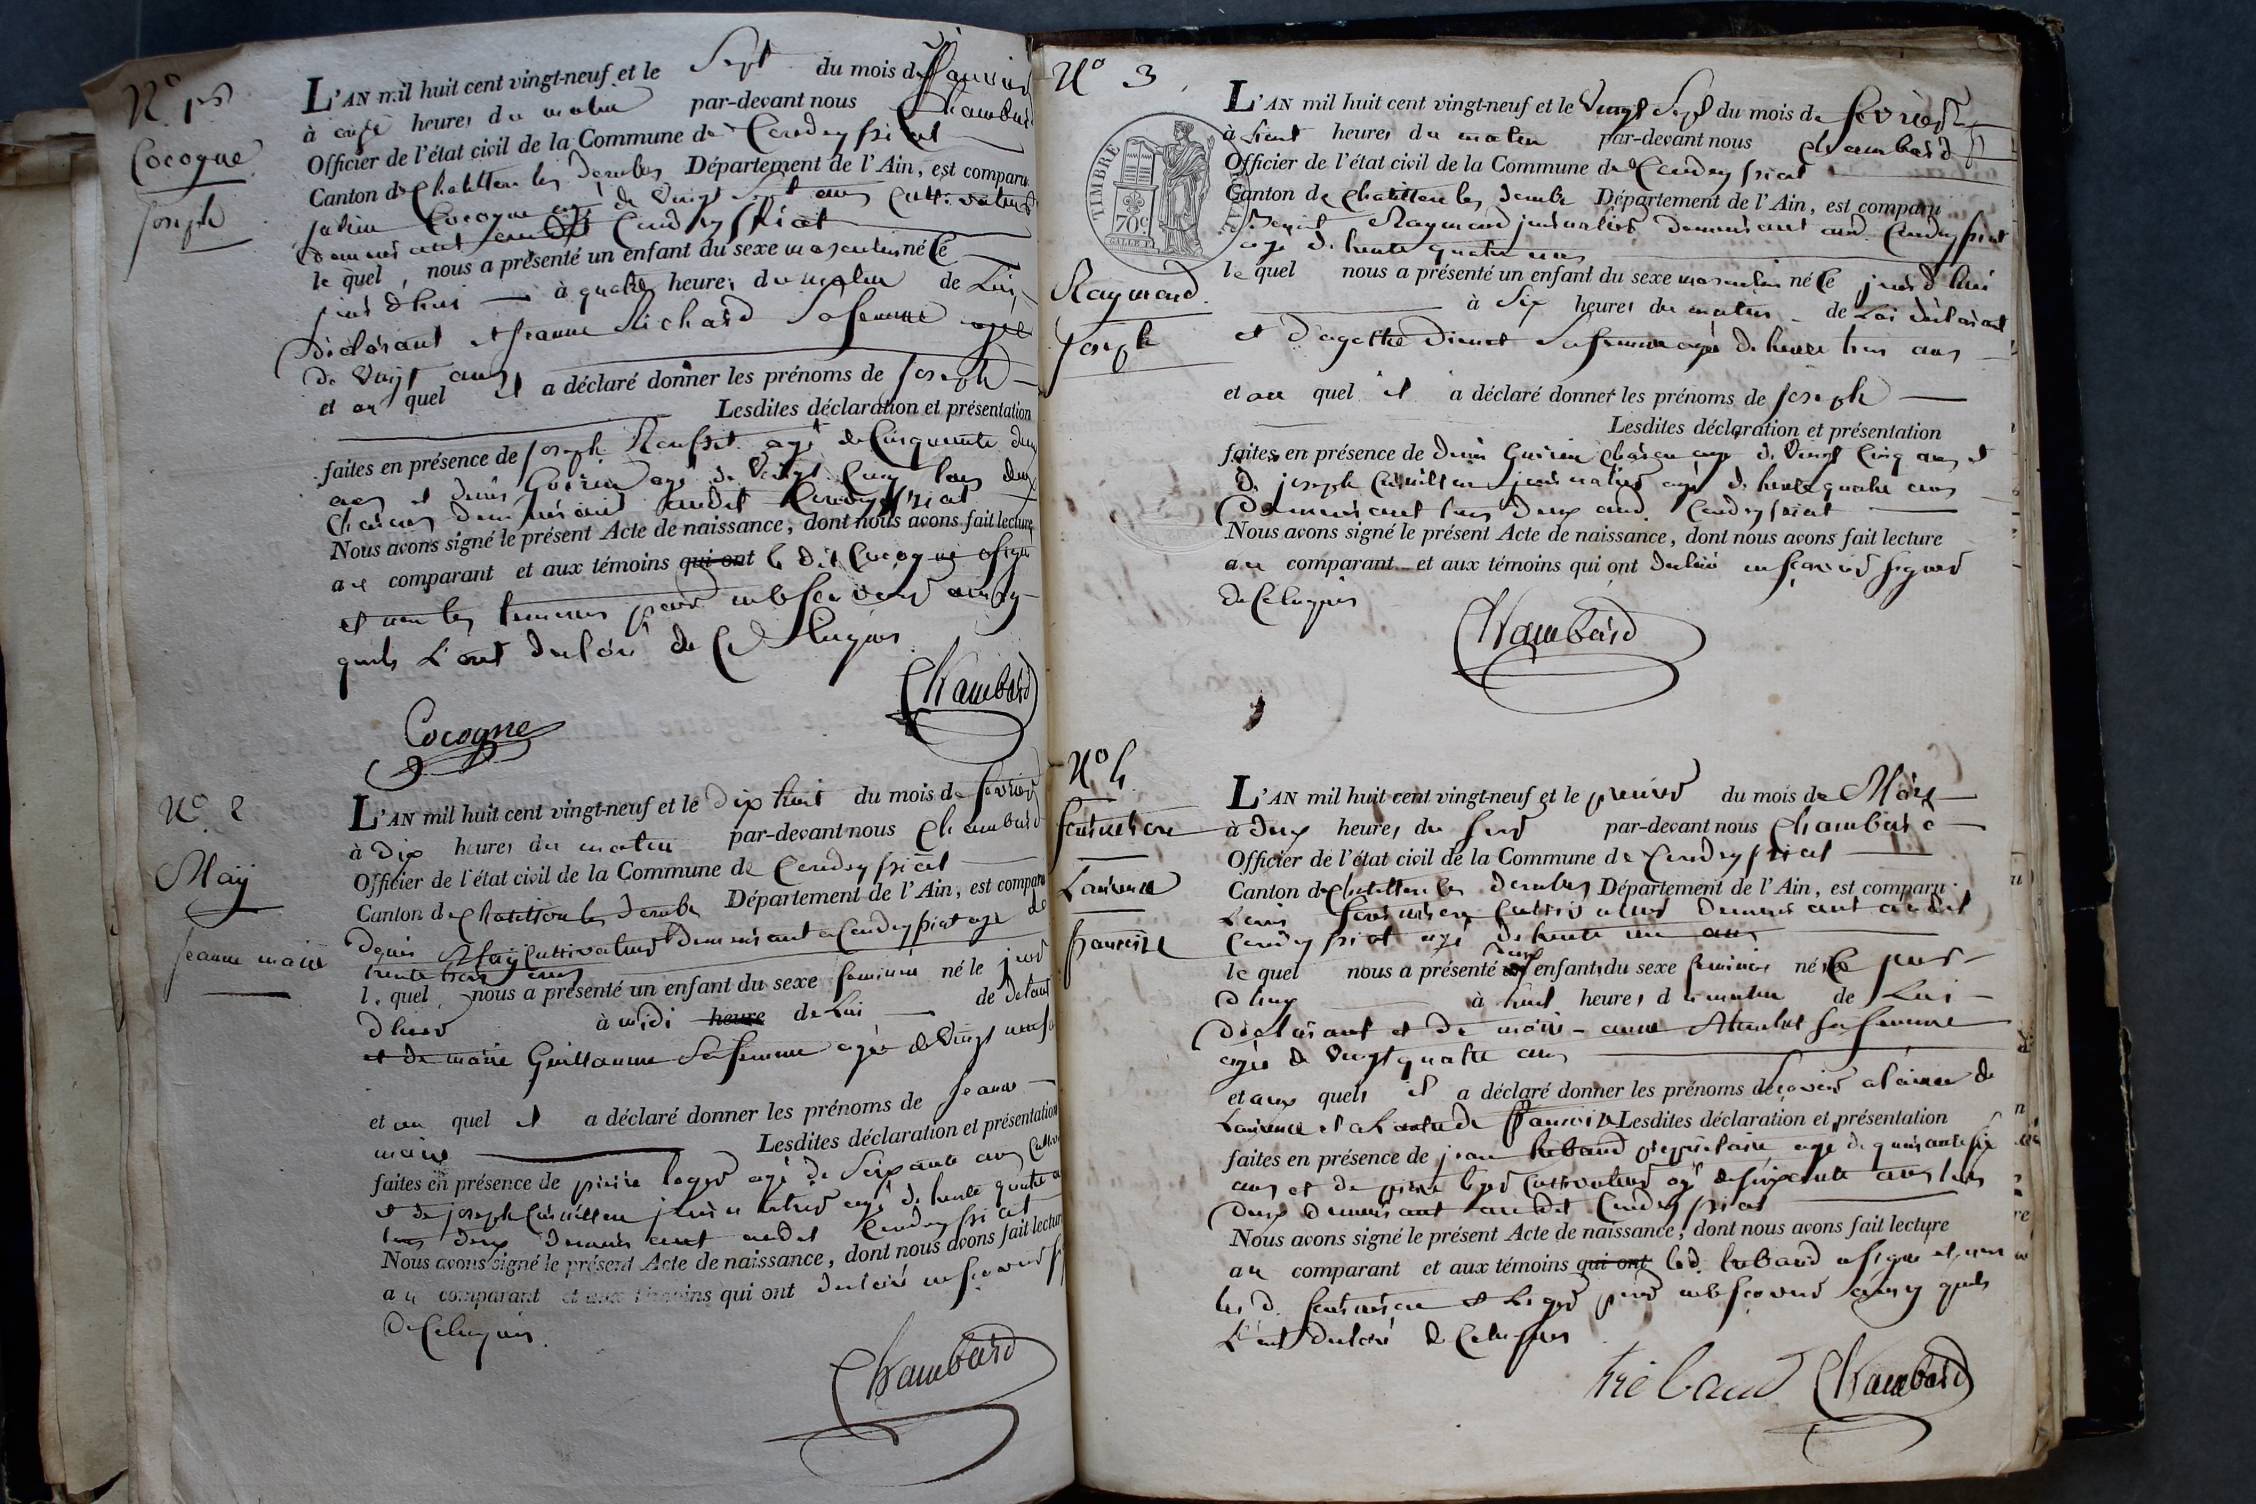 N.º 1er
Cocogne
Joseph
L'AN mil huit cent vingt-neuf et le Sept du mois de Janvier
à onze heures du matin par-devant nous Chambard
Officier de l'état civil de la Commune de Condeyssiat
Canton de Chatillon les Dombes Département de l'Ain, est comparu
Cocogne agé de Vingt Sept ans Cultivateur
demeurant audit Condeyssiat
le quel nous a présenté un enfant du sexe masculin né le
jour d'hui à quatre heures du matin de Lui
Déclarant et Jeanne Richard Sa femme agée
de Vingt ans
et au quel il a déclaré donner les prénoms de Joseph
Lesdites déclaration et présentation
faites en présence de Joseph agé de Cinquante deux
ans et denis Guérin agé de Vingt Cinq tous deux
demeurant audit Condeyssiat
Nous avons signé le présent Acte de naissance, dont nous avons fait lecture
au comparant et aux témoins qui ont le dit Cocogne a signé
et non les temoins pour
quels L'ont déclaré de Ce Requis
Chambard
Cocogne
N.º 2
Maÿ
Jeanne marie
L'AN mil huit cent vingt-neuf et le dix huit du mois de fevrier
à Dix heures du matin par-devant nous Chambard
Officier de l'état civil de la Commune de Condeyssiat
Canton de Chatillon les Dombe Département de l'Ain, est comparu
denis Maÿ Cultivateur demeurant a Condeyssiat age de
trente trois ans
le quel nous a présenté un enfant du sexe feminin né le jour
d'hier à midi heure de Lui de
et de marie Guillaume Sa femme agée de Vingt neuf
et au quel il a déclaré donner les prénoms de Jeanne
marie Lesdites déclaration et présentation
faites en présence de pierre loger agé de Soixante ans
et de joseph journalier agé de trente quatre
tous deux demeurant audit Condeyssiat
Nous avons signé le présent Acte de naissance, dont nous avons fait lecture
au comparant et aux témoins qui ont declaré
de Ce Requis
Chambard
Nº 3
TIMBRE
70c
Raymond
Joseph
L'AN mil huit cent vingt-neuf et le Vingt Sept du mois de fevrier
à heures du matin par-devant nous Chambard
Officier de l'état civil de la Commune de Condeyssiat
Canton de Chatillon les Dombe Département de l'Ain, est comparu
Benoit Raymond journalier demeurant aud. Condeyssiat
age de trente quatre ans
le quel nous a présenté un enfant du sexe masculin né le jour d'hui
à Six heures du matin de Lui déclarant
et d'agathe Sa femme agée de trente trois ans
et au quel il a déclaré donner les prénoms de Joseph
Lesdites déclaration et présentation
faites en présence de denis Guérin agé de Vingt Cinq ans et
de joseph journalier agé de trente quatre ans
Demeurant tous deux aud. Condeyssiat
Nous avons signé le présent Acte de naissance, dont nous avons fait lecture
au comparant et aux témoins qui ont declaré ne savoir signer
de Ce Requis
Chambard
Nº 4
Laurence
françoise
L'AN mil huit cent vingt-neuf et le premier du mois de Mars
à deux heures du soir par-devant nous Chambard
Officier de l'état civil de la Commune de Condeyssiat
Canton de Chatillon les Dombes Département de l'Ain, est comparu
Louis Cultivateur demeurant audit
Condeyssiat agé de trente un ans
le quel nous a présenté deux enfants du sexe feminin né le jour
d'huy à huit heures du matin de Lui
Déclarant et de marie-anne Sa femme
agée de Vingt quatre ans
et aux quels il a déclaré donner les prénoms de savoir a l'ainée de
Laurence et a L'autre de françoise Lesdites déclaration et présentation
faites en présence de jean trebaud propriétaire agé de quarante six
ans et de pierre loger Cultivateur agé de soixante ans tous
deux demeurant audit Condeyssiat
Nous avons signé le présent Acte de naissance, dont nous avons fait lecture
au comparant et aux témoins qui ont led. trebaud a signé et non
les d. et Loger pour
L'ont declaré de Ce Requis
trebaud Chambard